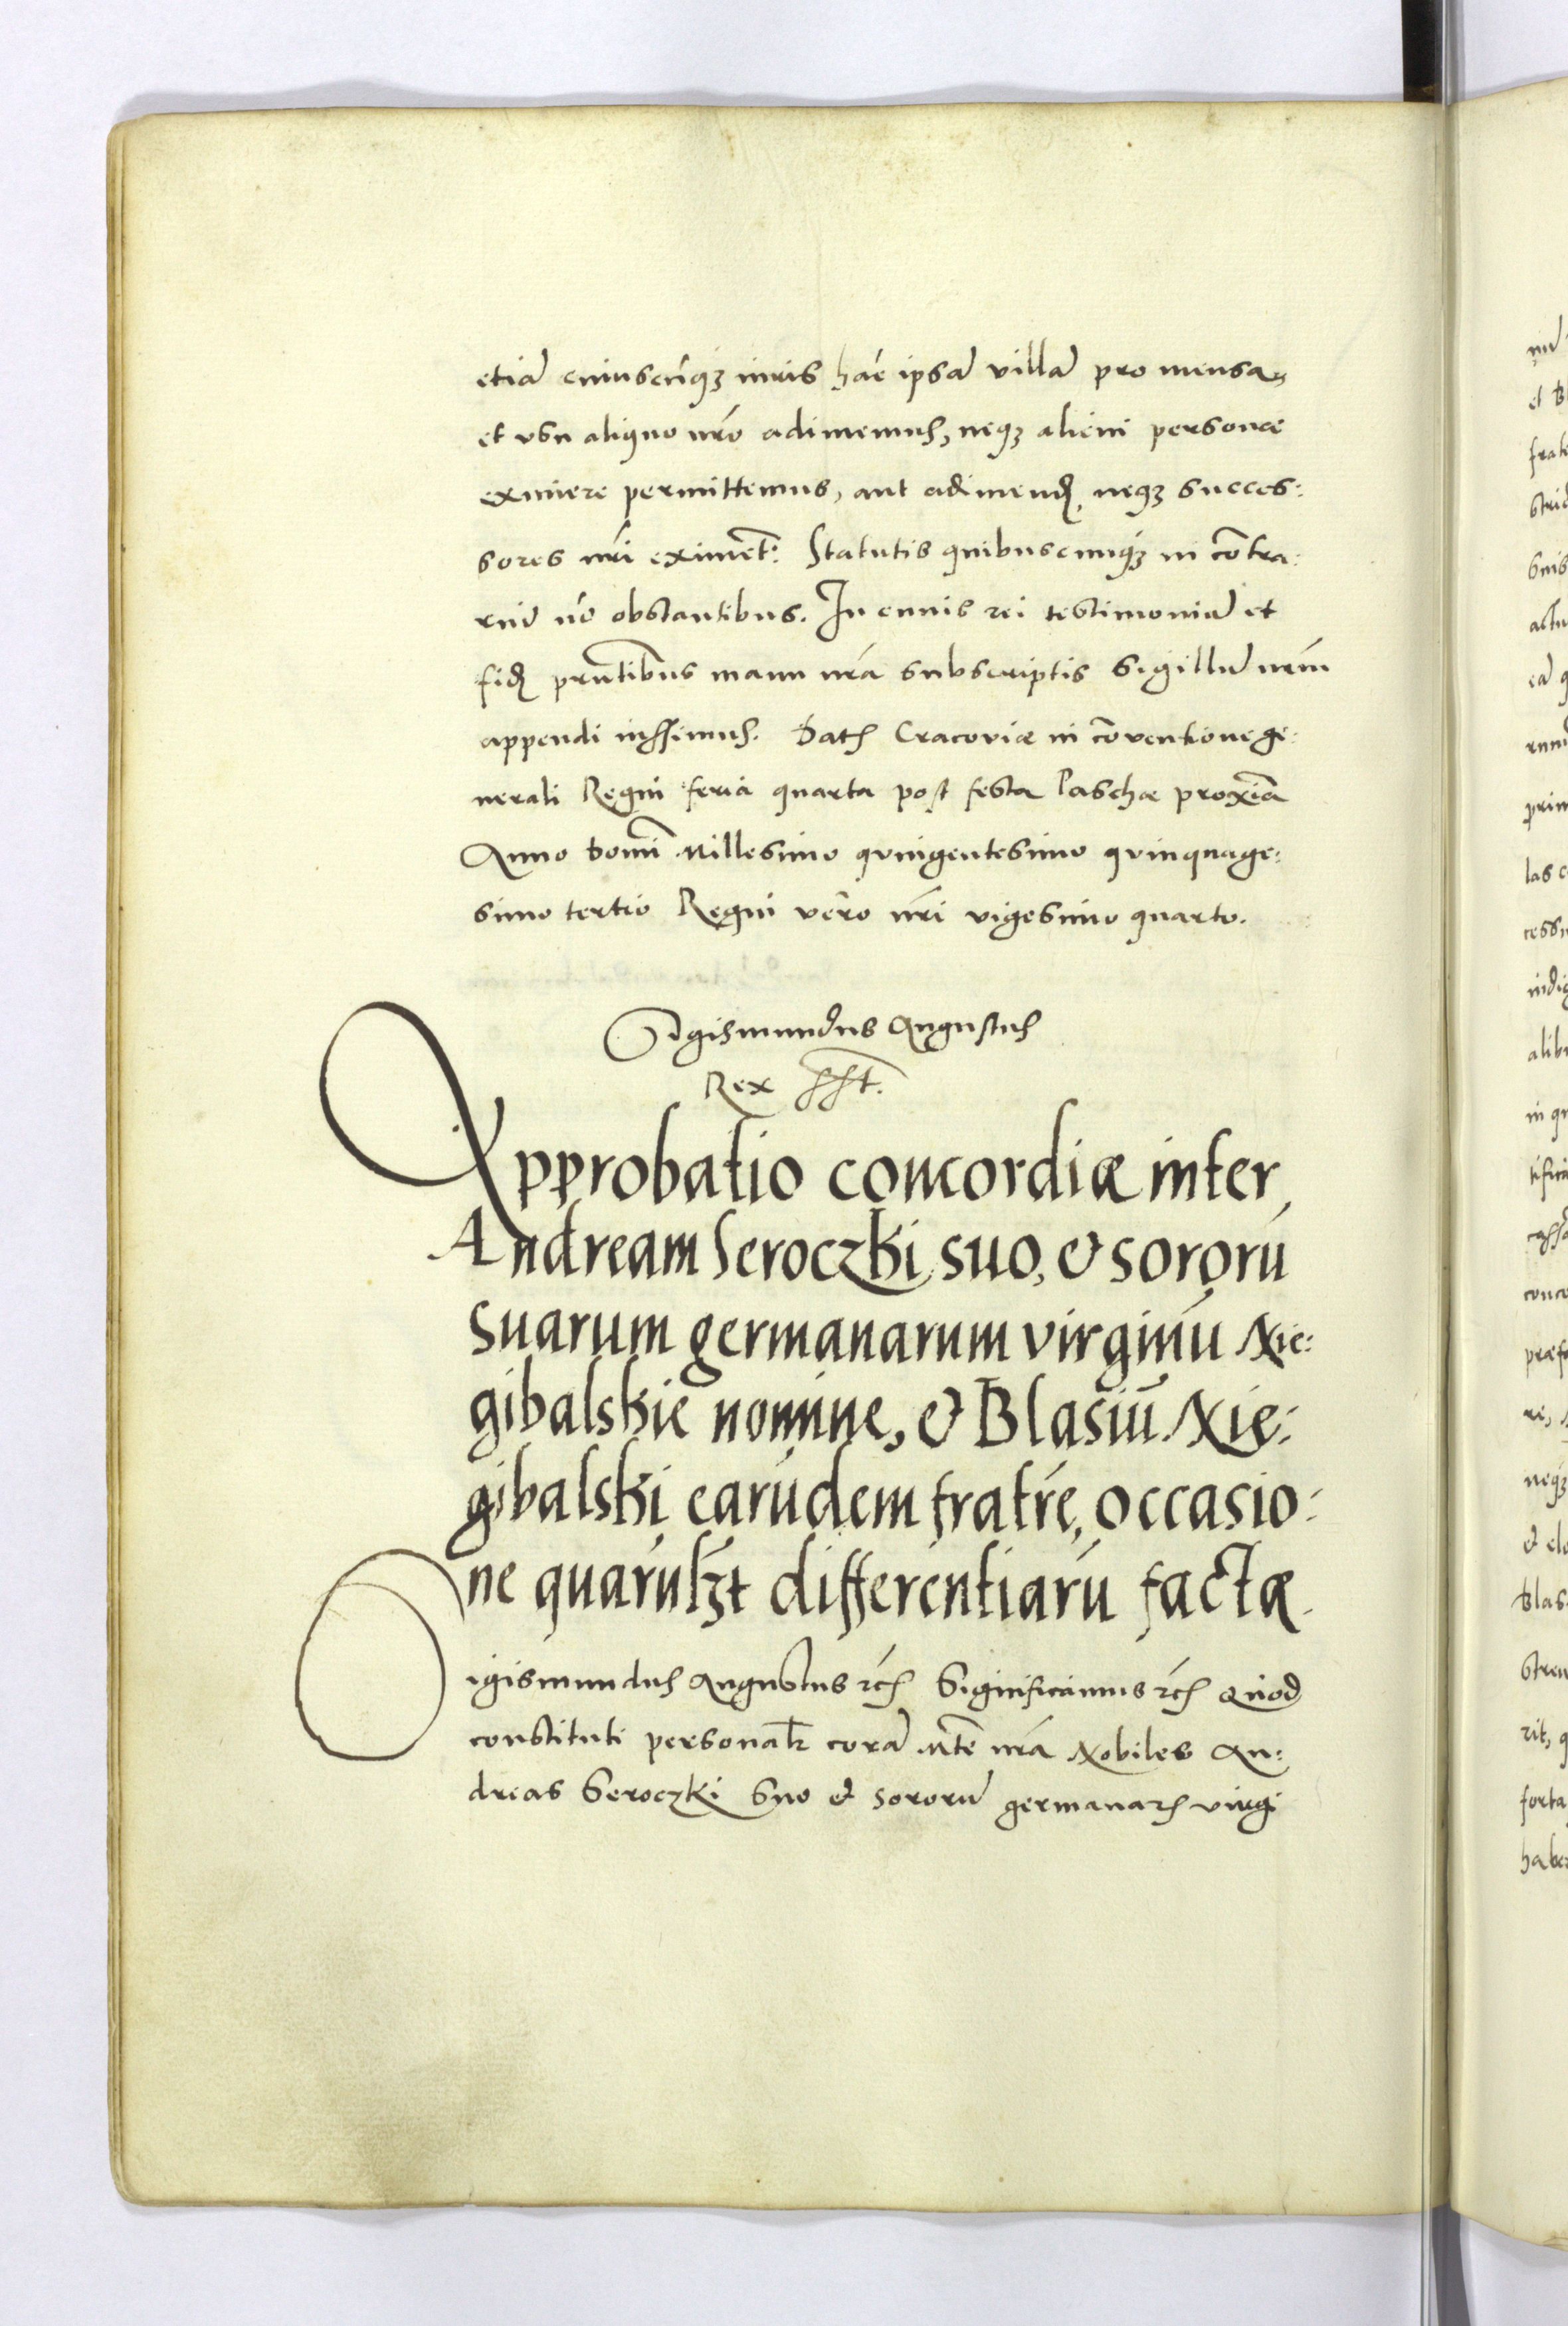 etiā cuiuscūqꝫ iuris hāc ipsā villā pro mensa
et vsu aliquo nr̄o adimemus, neqꝫ alicui personæ
eximere permittemus, aut adimendꝭ, neqꝫ succes:
sores nr̄i eximēt. Statutis quibuscumqꝫ in cōtra:
riū nō obstantibus. In cuius rei testimoniū et
fidꝭ pr̄ntibus manu nr̄a subscriptis Sigillū nr̄m
appendi iussimus. Datꝭ Cracoviæ in cōventione ge:
nerali Regni feria quarta post festa Paschæ proxīa
Anno Domī Millesimo quingentesimo quinquage:
simo tertio Regni vero nr̄i vigesimo quarto.
Sigismundus Augustus
Rex sst.
Approbatio concordiæ inter
Andream Seroczki suo, & sororū
suarum germanarum virginū Nie:
gibalskie nomine, & Blasiū Nie:
gibalski earūdem fratrē, occasio:
ne quarūlꝫt differentiarū factæ
igismundus Augustus ꝛcꝭ Significamus ꝛcꝭ Quod
constituti personalr̄ corā Mte nr̄a Nobiles An:
dreas Seroczki Suo & sororū germanarꝭ virgi